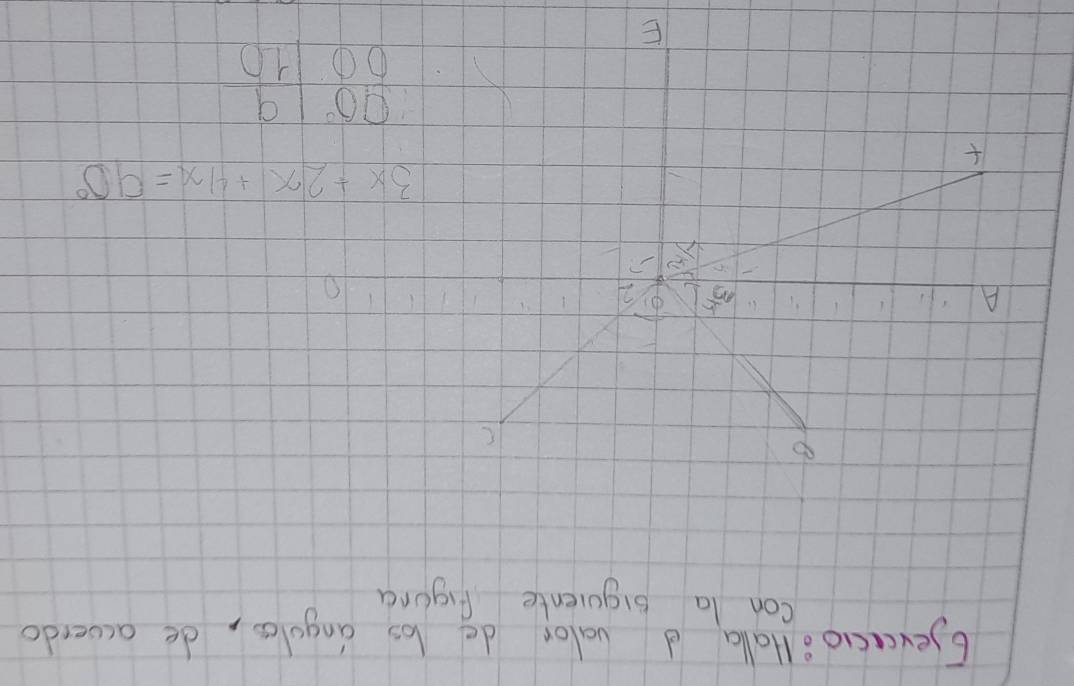 Ejercicio: Halla el valor de los ángulos, de acuerdo
con la siguiente figura
B
C
A
D
F
E
3x + 2x + 4x = 90°
90° 9
00 10